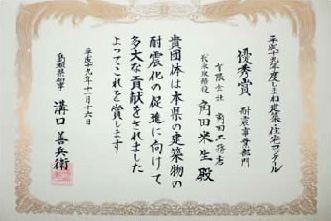 平成十九年度しまね建築・住宅コンクール
優秀賞 耐震事業部門
有限会社 角田工務店
代表取締役 角田米生殿
貴団体は本県の建築物の
耐震化の促進に向けて
多大な貢献をされました
よってこれを賞します
平成十九年十一月十六日
島根県知事 溝口善兵衛